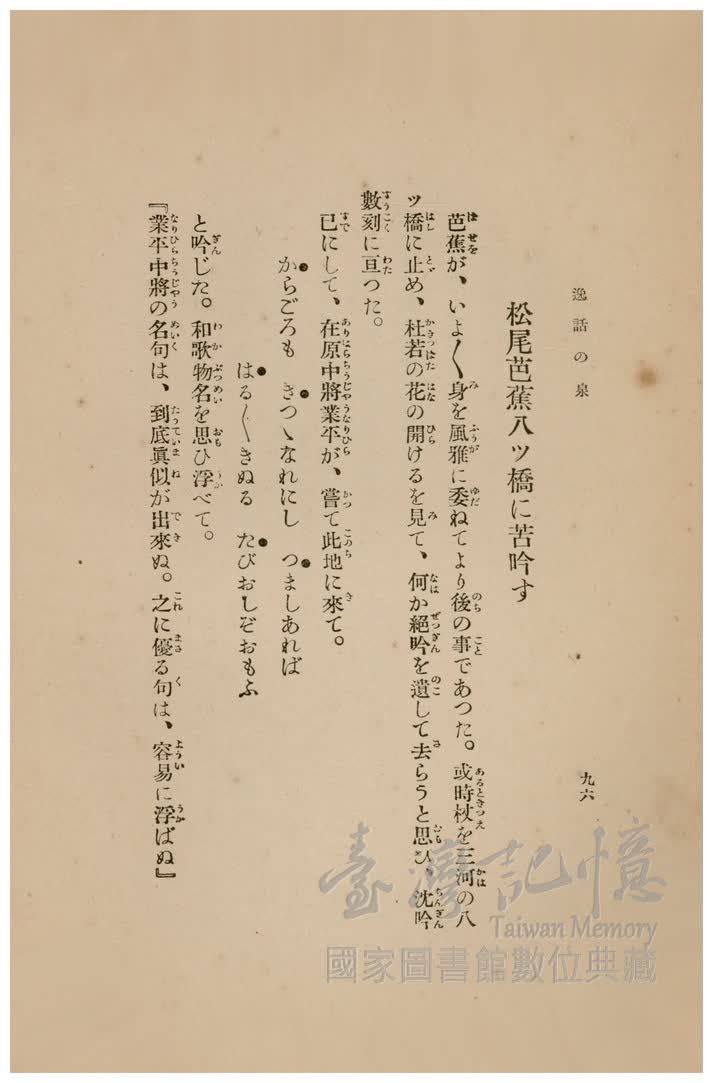 逸話の泉
九六
松尾芭蕉八ッ橋に苦吟す
芭蕉が、いよ〱身を風雅に委ねてより後の事であつた。或時杖を三河の八
ッ橋に止め、杜若の花の開けるを見て、何か絕吟を遺して去らうと思ひ、沈吟
數刻に亘つた。
已にして、在原中將業平が、嘗て此地に來て。
からごろも　きつゝなれにし　つましあれば
はる〲きぬる　たびおしぞおもふ
と吟じた。和歌物名を思ひ浮べて。
『業平中將の名句は、到底眞似が出來ぬ。之に優る句は、容易に浮ばぬ』
臺灣記憶
Taiwan Memory
國家圖書館數位典藏